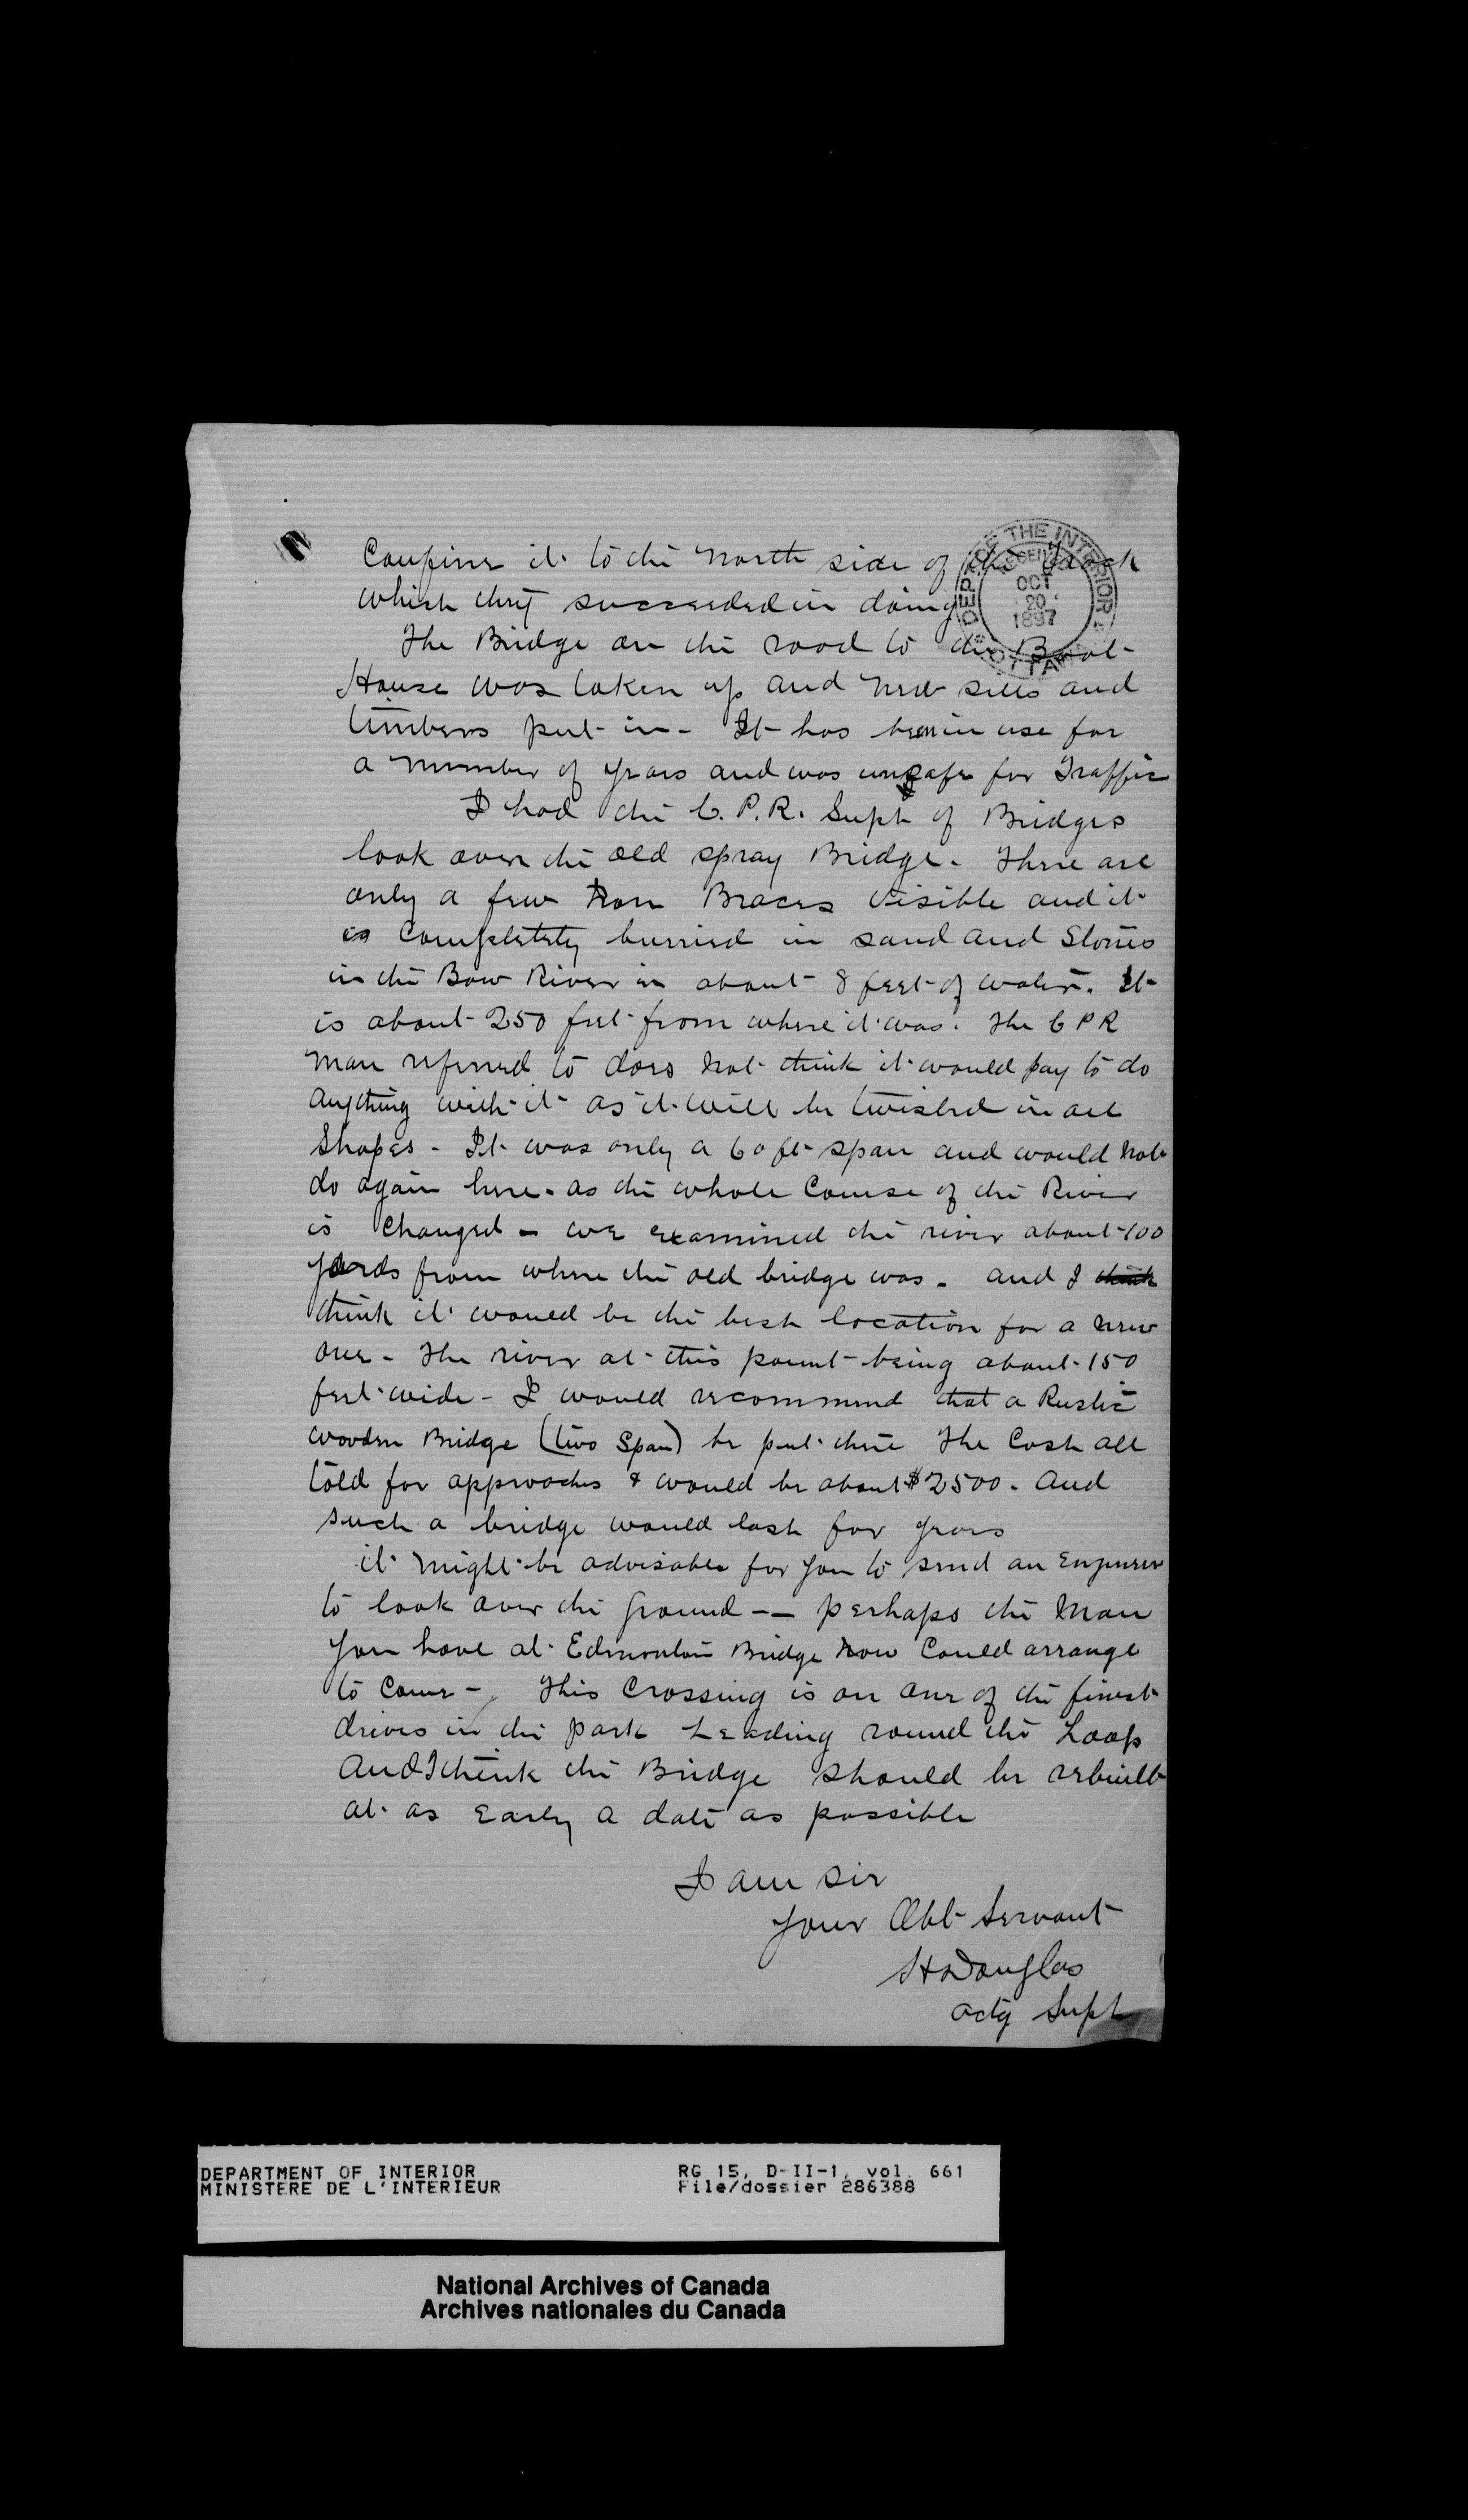 Confine it to the north side of the Track
which they succeeded in doing
DEPT OF THE INTERIOR
RECEIVED
OCT
20
1897
OTTAWA
The Bridge on the road to the Boat
House was taken up and new sills and
timbers put in - It has been in use for
a number of years and was unsafe for Traffic
I had the C. P. R. Supt of Bridges
look over the old spray Bridge. There are
only a few Iron Braces visible and it
is Completely burried in sand and Stones
in the Bow River in about 8 feet of water. It
is about 250 feet from where it was. The C P R
man referred to does not think it would pay to do
anything with it as it will be twisted in all
Shapes - It was only a 60 ft span and would not
do again here. as the whole Course of the River
is Changed - we examined the river about 100
yards from where the old bridge was - and I think
think it would be the best location for a new
one - The river at this point being about 150
feet wide - I would recommend that a Rustic
wooden Bridge (two Span) be put there The Cost all
told for approaches & would be about $2500. and
such a bridge would last for years
it might be advisable for you to send an Engineer
to look over the ground -- perhaps the Man
you have at Edmonton Bridge now Could arrange
to Come - This Crossing is on one of the finest
drives in the park Leading round the Loop
And I think the Bridge should be rebuilt
at as Early a date as possible
I am Sir
Your Obt Servant
H Douglas
actg Supt
DEPARTMENT OF INTERIOR
MINISTERE DE L'INTERIEUR
RG 15, D-II-1, vol. 661
File/dossier 286388
National Archives of Canada
Archives nationales du Canada